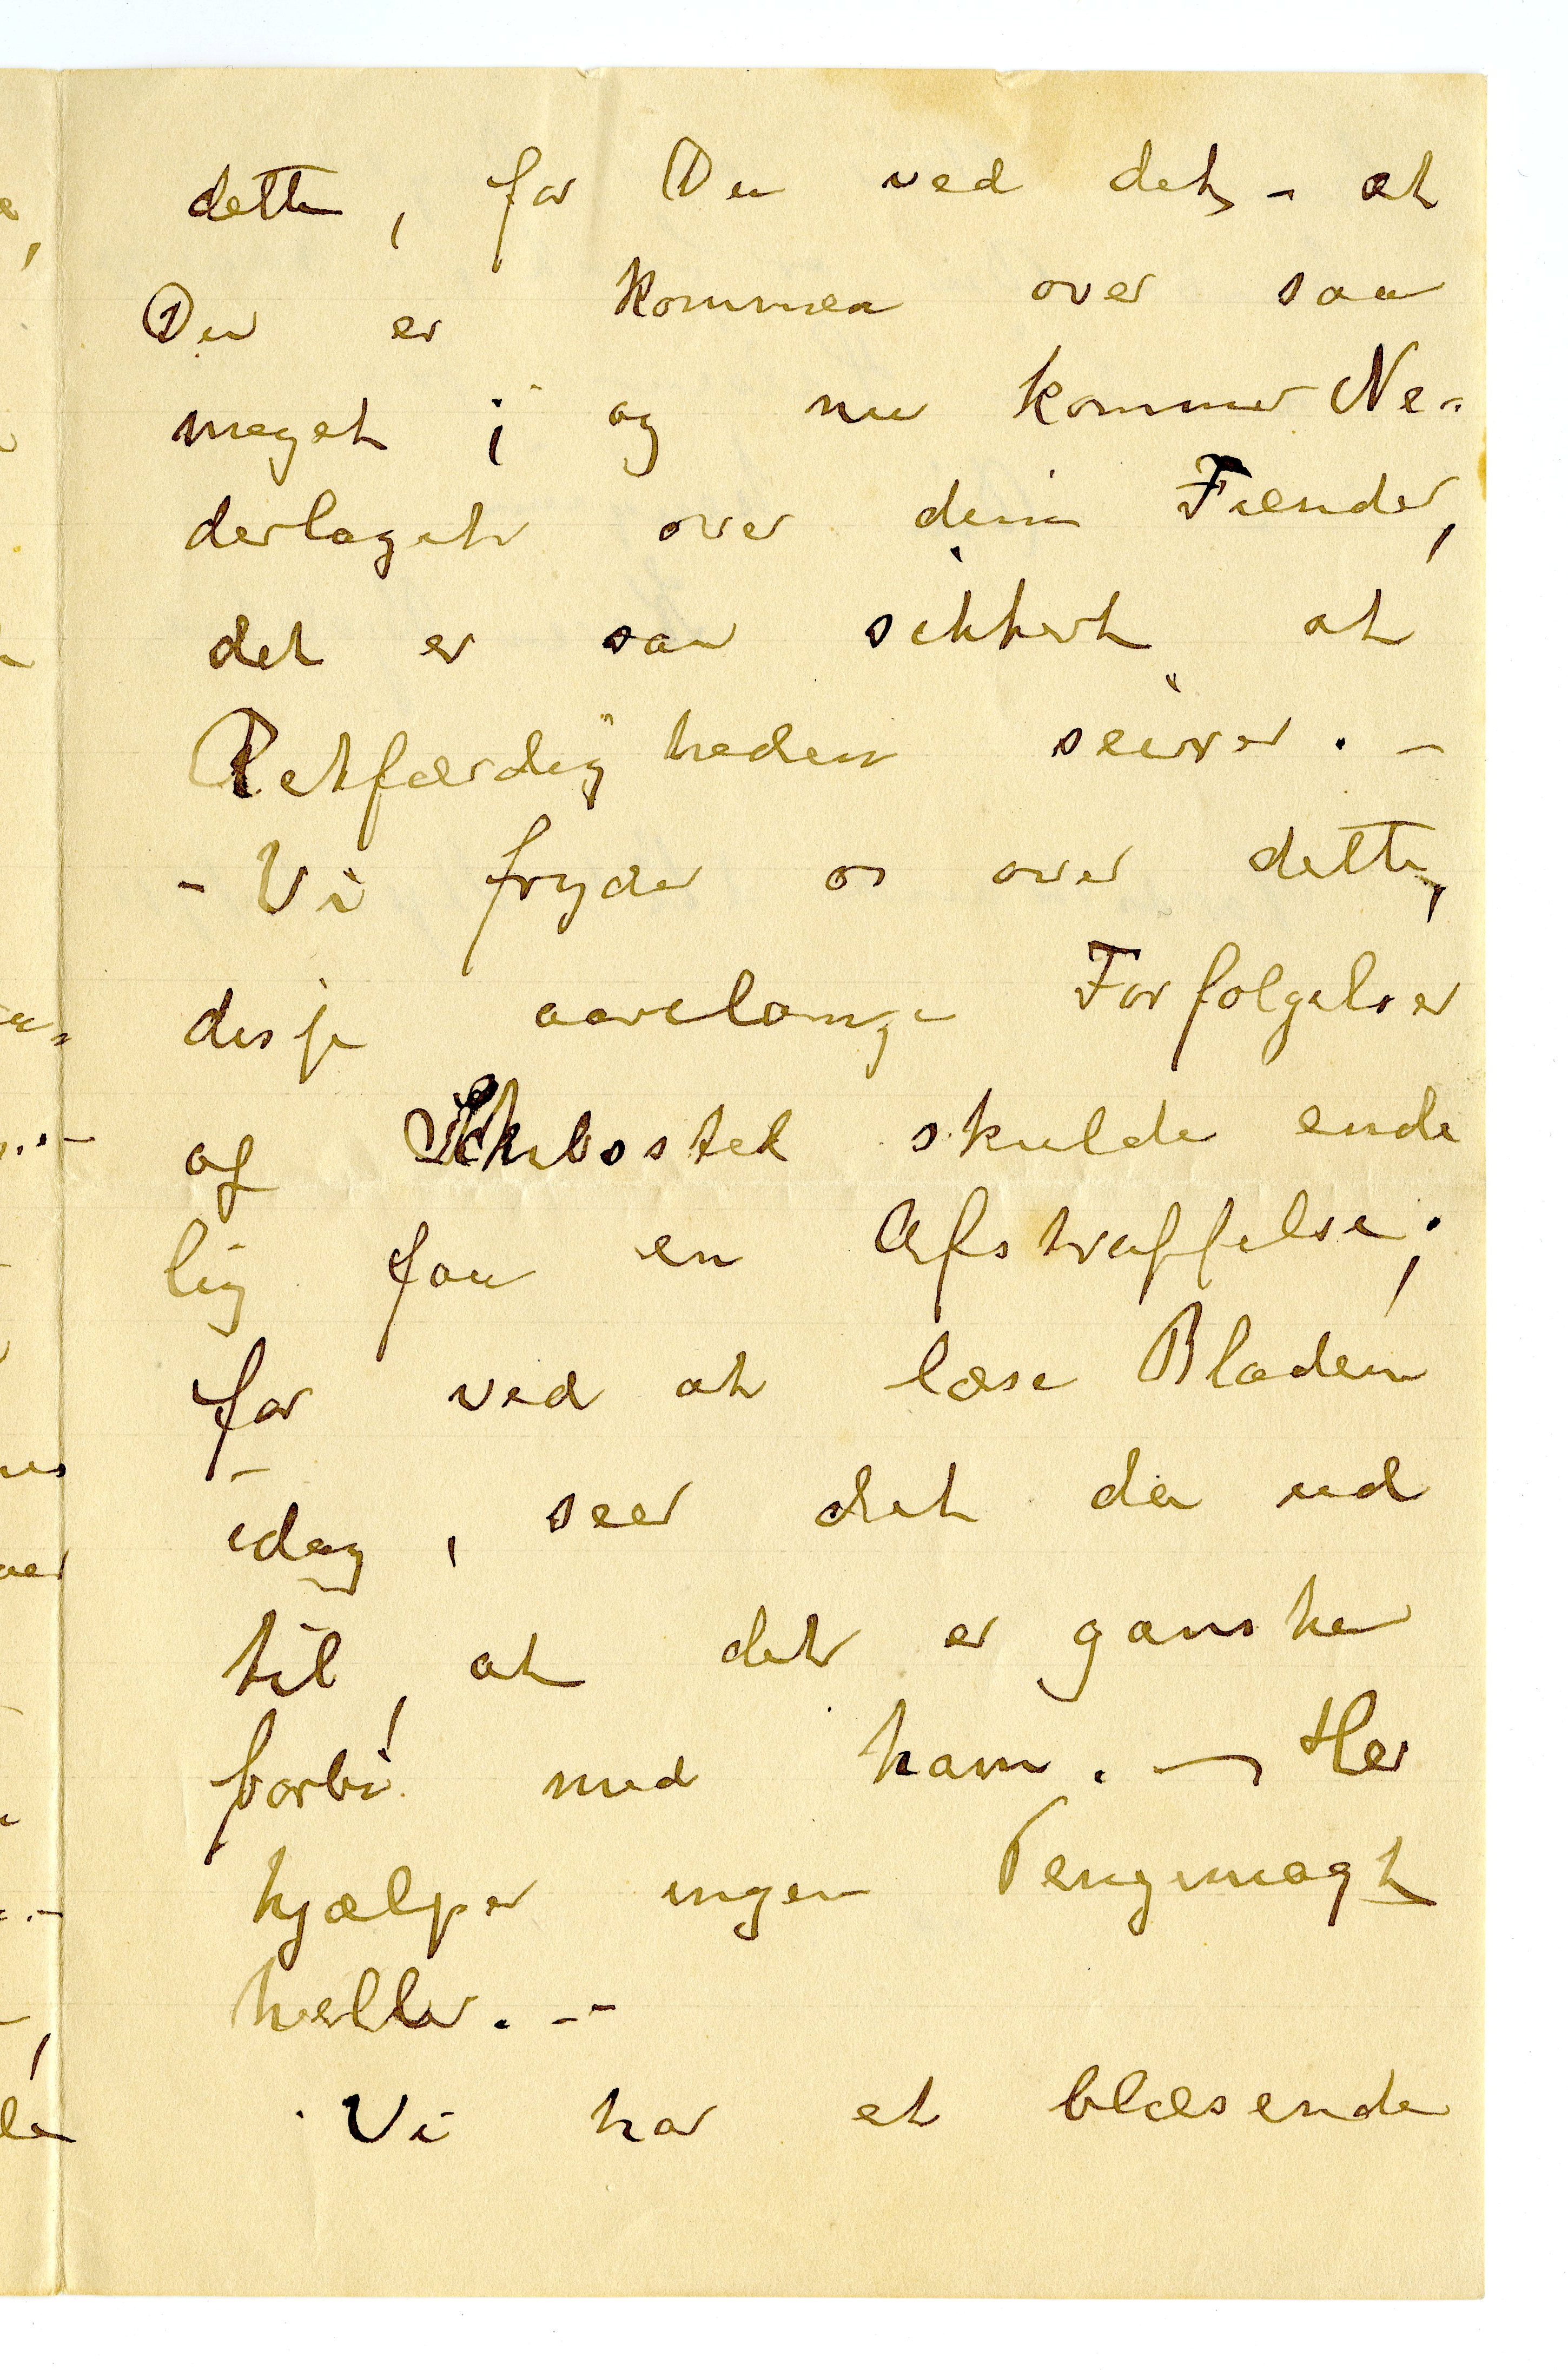 dette, for Du ved det, - at
Du er kommen over saa
meget i og nu kommer Ne-
derlaget over dine Fiender,
det er saa sikkert at
Retfærdigheden seirer. -
- Vi fryder os over dette,
disse aarelange Forfølgelser
af skulde ende
lig faa en Afstraffelse;
for ved at læse Bladene
idag, seer det da ud
til, at det er ganske
forbi med ham. - Her
hjælper ingen Pengemagt
heller. --
Vi har et blæsende